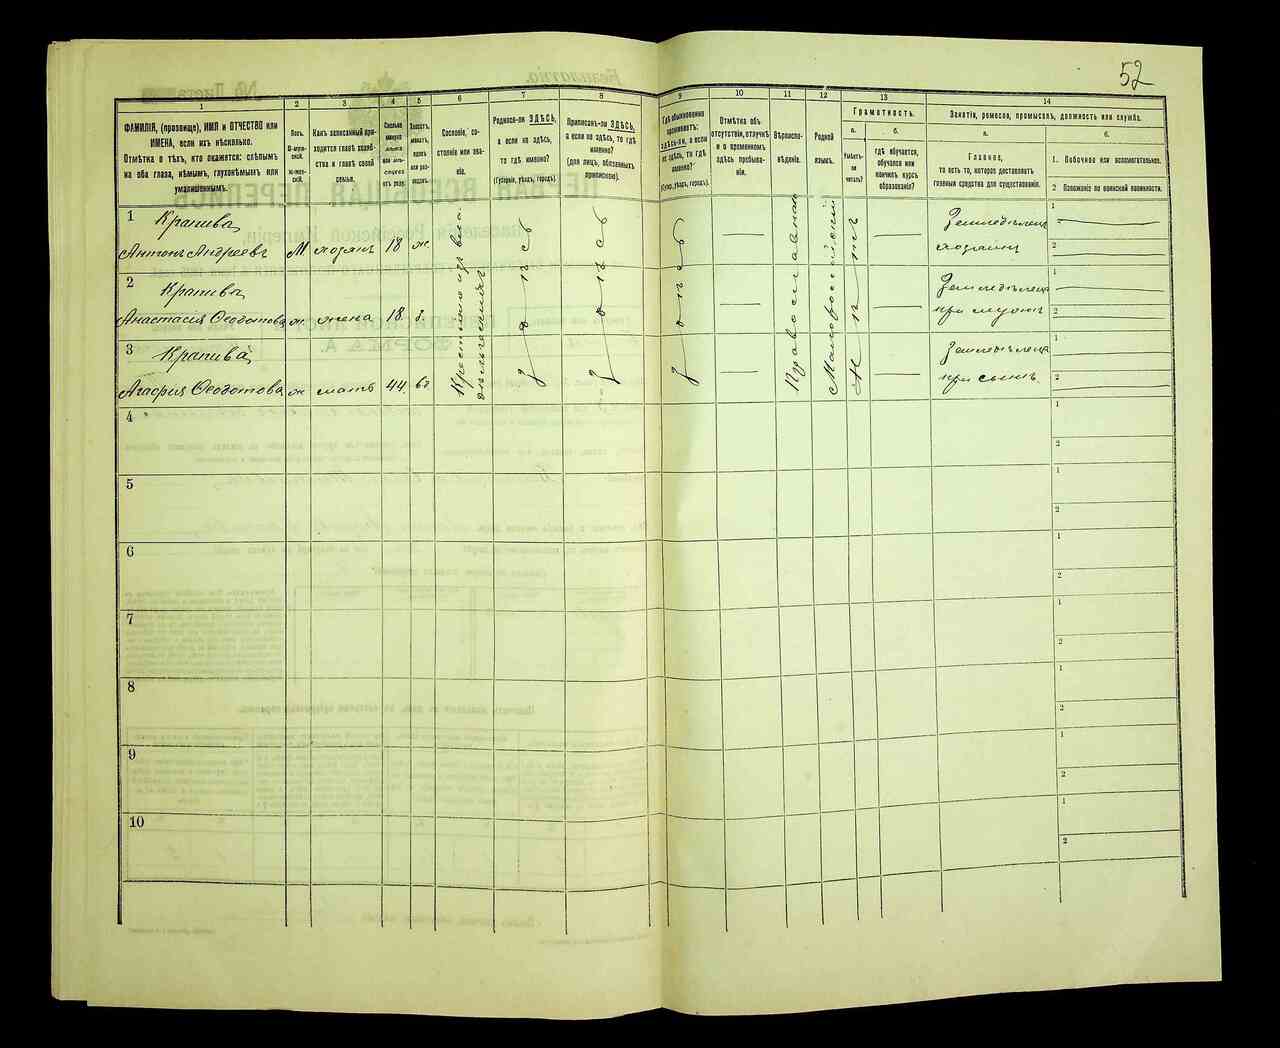 52
1 2 3 4 5 6 7 8 9 10 11 12 13 14
ФАМИЛІЯ, (прозвище), ИМЯ и ОТЧЕСТВО или
ИМЕНА, если ихъ нѣсколько.
Отмѣтка о тѣхъ, кто окажется: слѣпымъ
на оба глаза, нѣмымъ, глухонѣмымъ или
умалишеннымъ.
Полъ.
М-муж-
ской.
Ж-жен-
скій.
Какъ записанный при-
ходится главѣ хозяй-
ства и главѣ своей
семьи.
Сколько
минуло
лѣтъ
или мѣ-
сяцевъ
отъ роду.
Холостъ,
женатъ,
вдовъ
или раз-
веденъ.
Сословіе, со-
стояніе или зва-
ніе.
Родился-ли ЗДѢСЬ,
а если не здѣсь,
то гдѣ именно?
(Губернія, уѣздъ, городъ).
Приписанъ-ли ЗДѢСЬ,
а если не здѣсь, то гдѣ
именно?
(для лицъ, обязанныхъ
припискою).
Гдѣ обыкновенно
проживаетъ:
здѣсь-ли, а если
не здѣсь, то гдѣ
именно?
(Губер., уѣздъ, городъ).
Отмѣтка объ
отсутствіи, отлучкѣ
и о временномъ
здѣсь пребыва-
ніи.
Вѣроиспо-
вѣданіе.
Родной
языкъ.
Грамотность.
а.
Умѣетъ-
ли
читать?
б.
гдѣ обучается,
обучался или
кончилъ курсъ
образованія?
Занятіе, ремесло, промыселъ, должность или служба.
а.
Главное,
то есть то, которое доставляетъ
главныя средства для существованія.
б.
1. Побочное или вспомогательное.
2 Положеніе по воинской повинности.
1 Крапива
Антонъ Андреевъ М хозяинъ 18 ж
Земледѣлецъ
хозяинъ
1
2
2 Крапива
Анастасія Ѳеодотова ж жена 18. з.
Земледѣлецъ
при мужѣ
1
2
3 Крапива
Агафія Ѳеодотова ж мать 44. вд
Земледѣлецъ
при сынѣ.
1
2
здѣсь
здѣсь
здѣсь
Православная
Малороссійскій
4 1
2
5 1
2
6 1
2
7 1
2
8 1
2
9 1
2
10 1
2